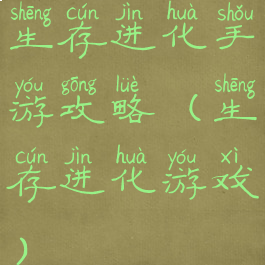 shēng cún jìn huà shǒu
生存进化手
yóu gōng lüè shēng
游攻略（生
cún jìn huà yóu xì
存进化游戏
）